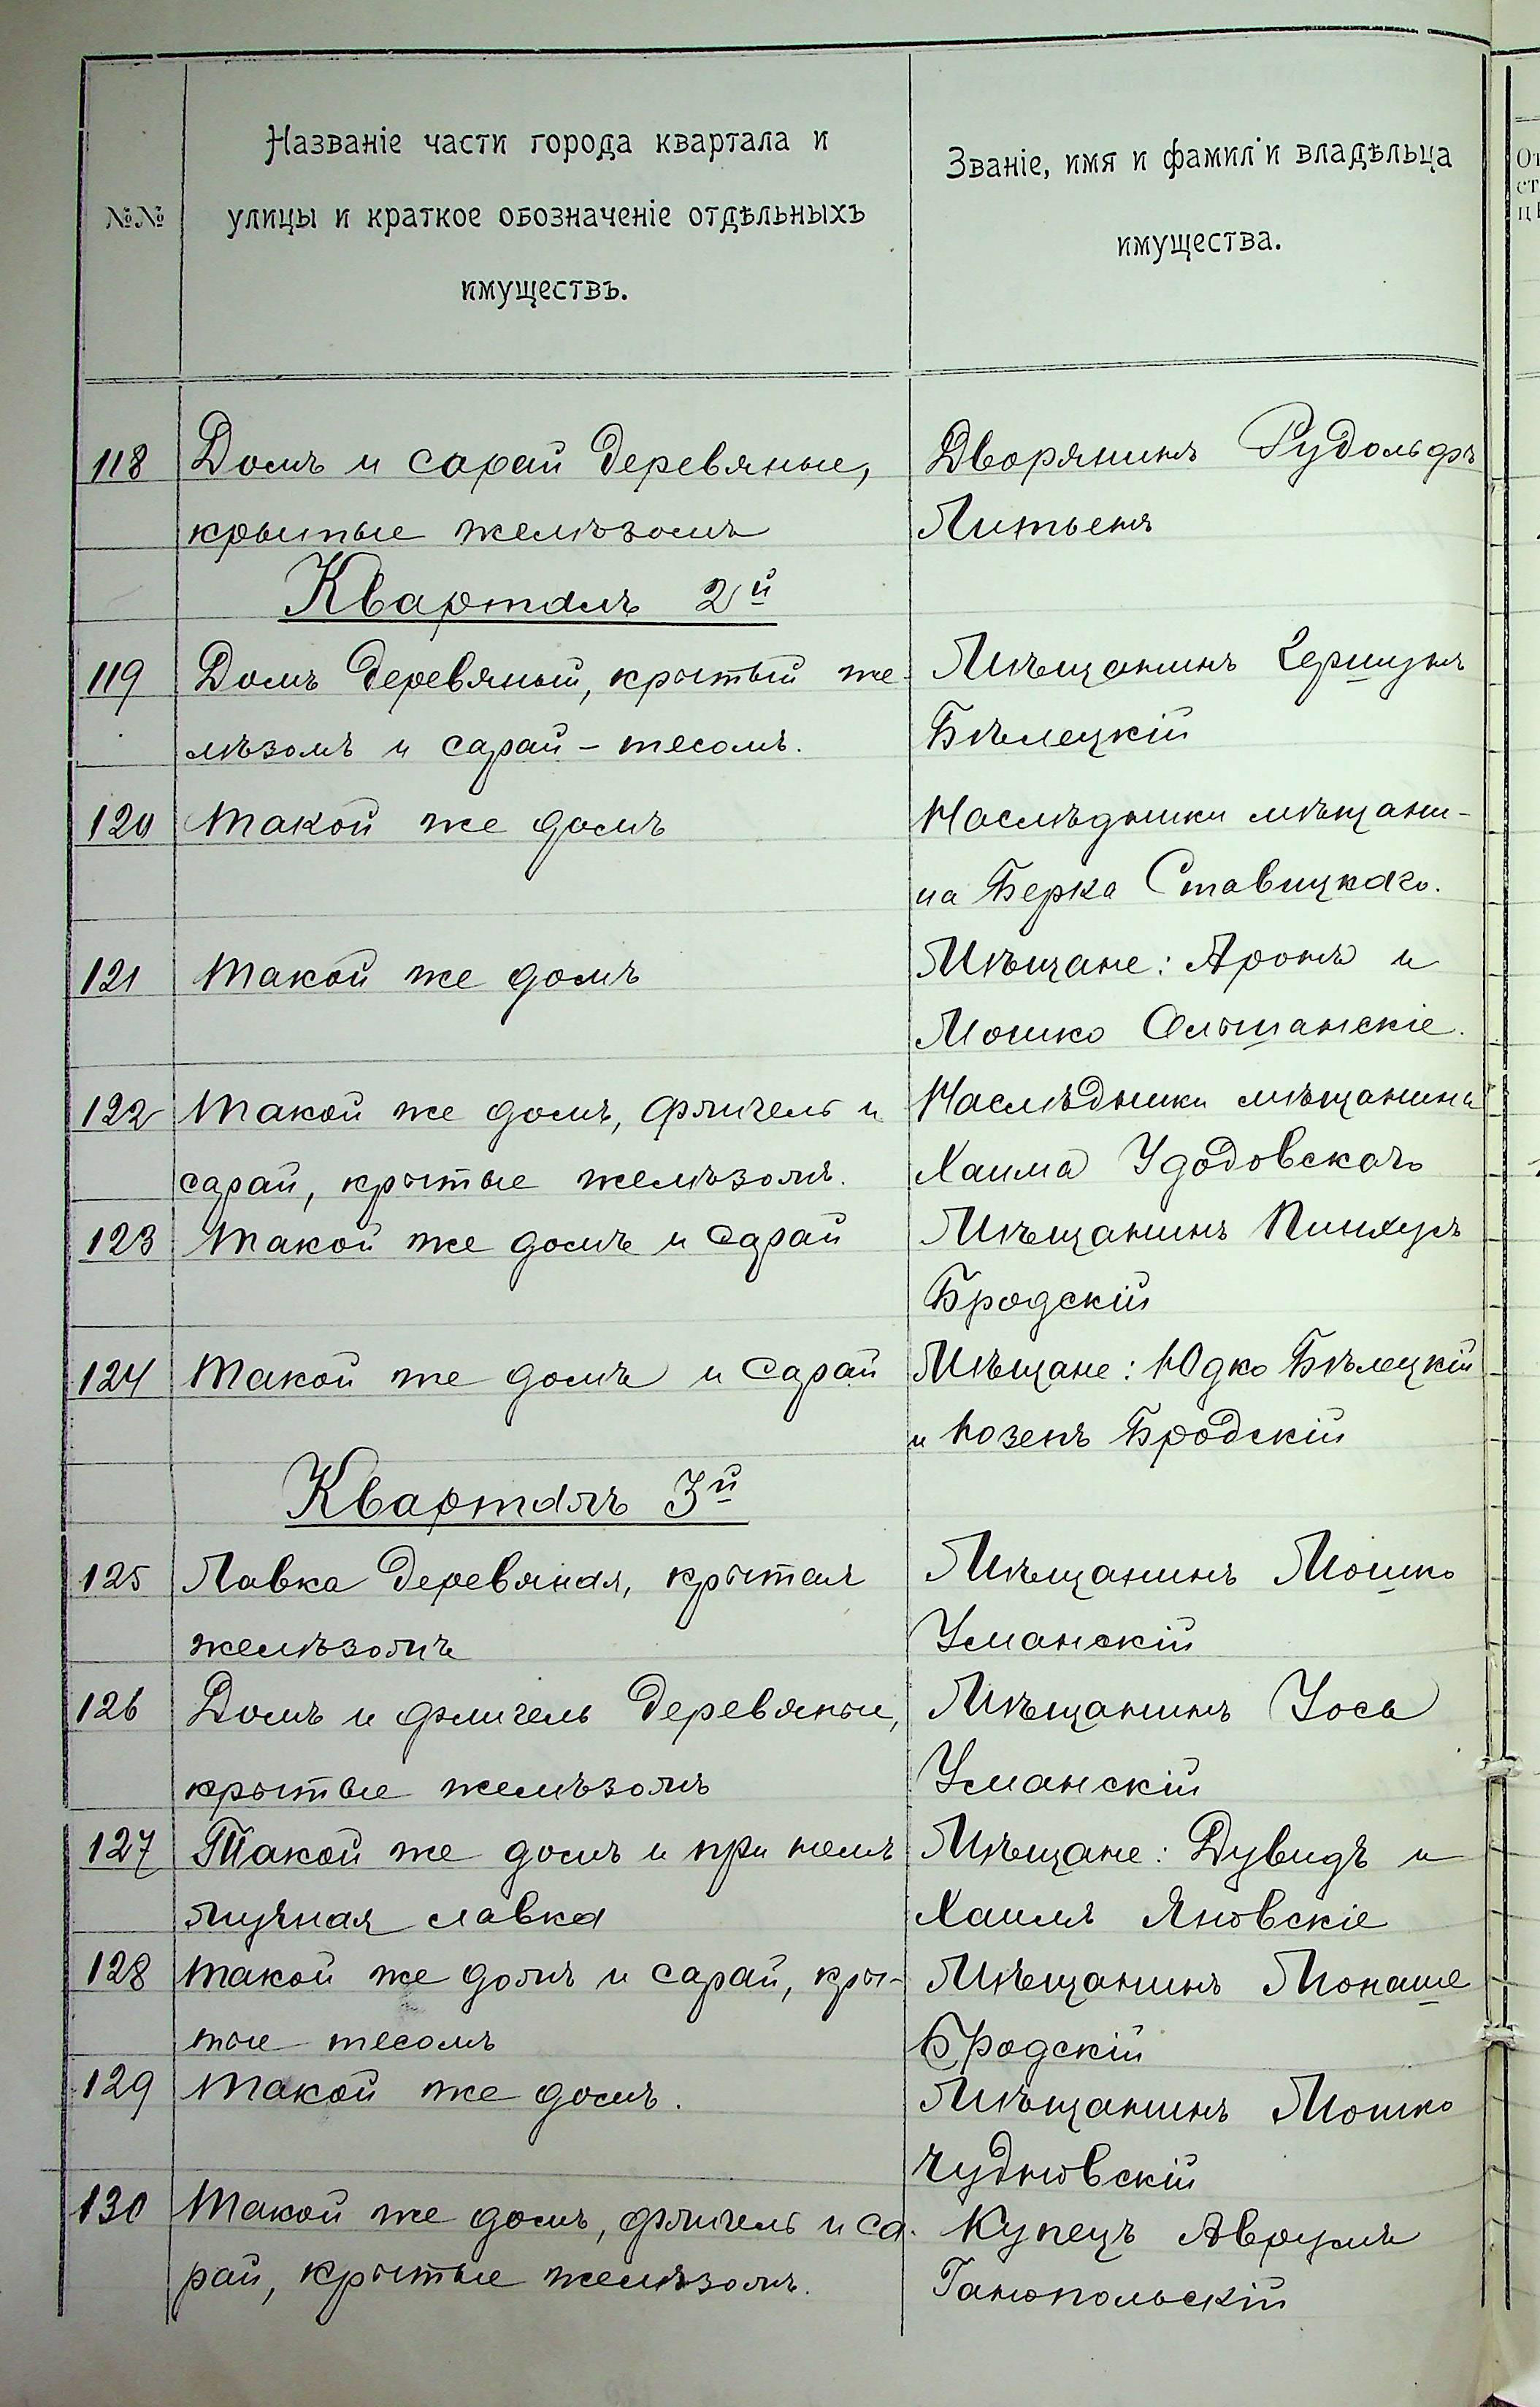 №№
Названіе части города квартала и
улицы и краткое обозначеніе отдѣльныхъ
имуществъ.
Званіе, имя и фамиліи владѣльца
имущества.
118 Домъ и сарай деревяные, Дворянинъ Рудольфъ
крытые желѣзомъ Литьенъ
Кварталъ 2й
119 Домъ деревяный, крытый же- Мѣщанинъ Гершунъ
лѣзомъ и сарай - тесомъ. Бѣлецкій
120 Такой же домъ Наслѣдники мѣщани-
на Берка Ставицкаго.
121 Такой же домъ Мѣщане: Аронъ и
Мошко Ольшанскіе.
122 Такой же домъ, флигель и Наслѣдники мѣщанина
сарай, крытые желѣзомъ. Хаима Удодовскаго
123 Такой же домъ и сарай Мѣщанинъ Пинхусъ
Бродскій
124 Такой же домъ и сарай Мѣщане: Юдко Бѣлецкій
и Юзепъ Бродскій
Кварталъ 3й
125 Лавка деревяная, крытая Мѣщанинъ Мошко
желѣзомъ Уманскій
126 Домъ и флигель деревяные, Мѣщанинъ Йось
крытые желѣзомъ Уманскій
127 Такой же домъ и при немъ Мѣщане: Дувидъ и
мучная лавка Хаимъ Яновскіе
128 Такой же домъ и сарай, кры- Мѣщанинъ Монаше
тые тесомъ Бродскій
129 Такой же домъ. Мѣщанинъ Мошко
Чудновскій
130 Такой же домъ, флигель и са- Купецъ Аврумъ
рай, крытые желѣзомъ. Ганопольскій